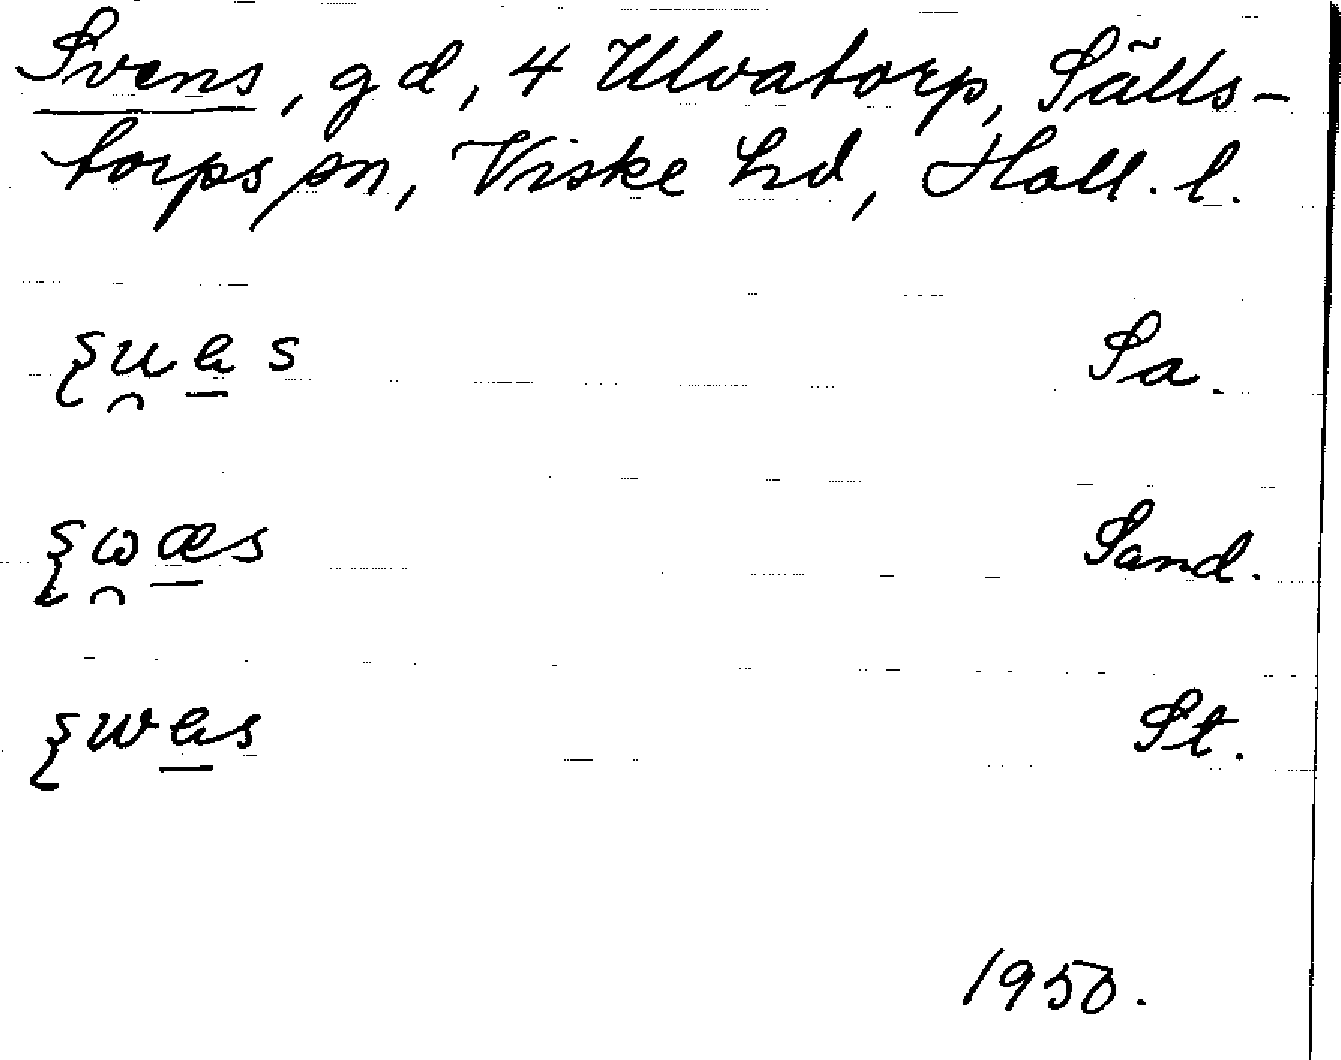 Svens, gd, 4 Ulvatorp, Sälls-
torps sn, Viske hd, Hall. l.
Sa.
Sand.
St.
1950.